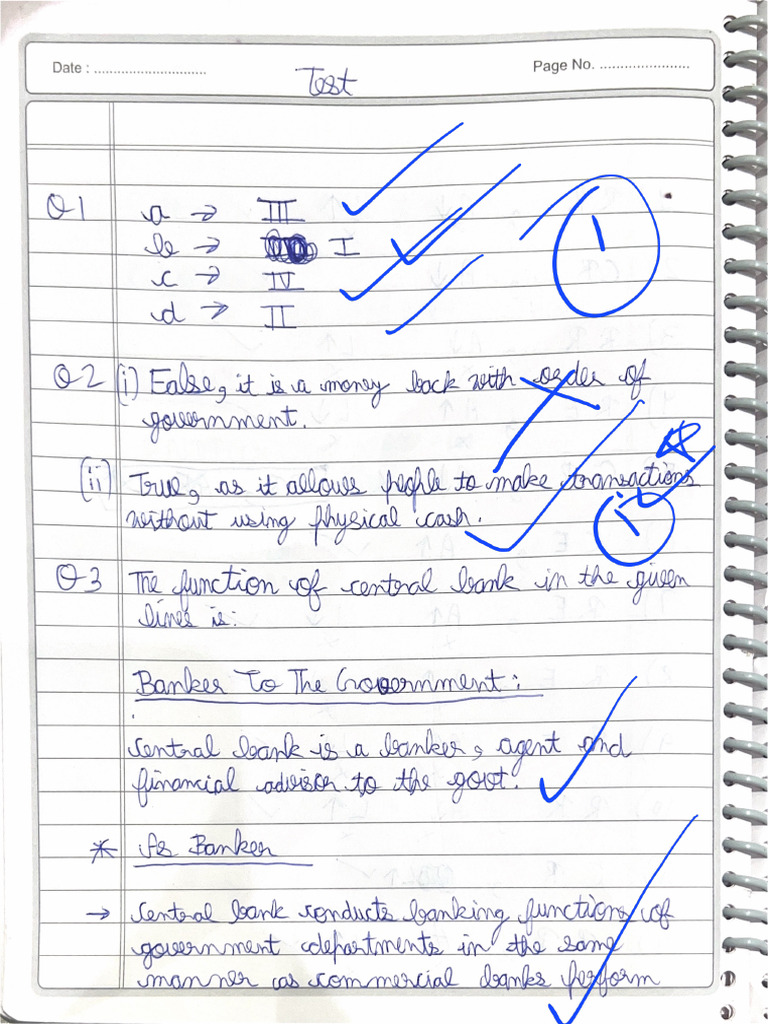 Date : ............................
Test
Page No. .......................
Q1 a → III
b → I
c → IV
d → II
1
Q2 (i) False, it is a money back with order of
government.
(ii) True, as it allows people to make transactions
without using physical cash.
1
Q3 The function of central bank in the given
lines is:
Banker To The Government:
Central bank is a banker, agent and
financial advisor to the govt.
* As Banker
→ Central bank conducts banking functions of
government departments in the same
manner as commercial banks perform